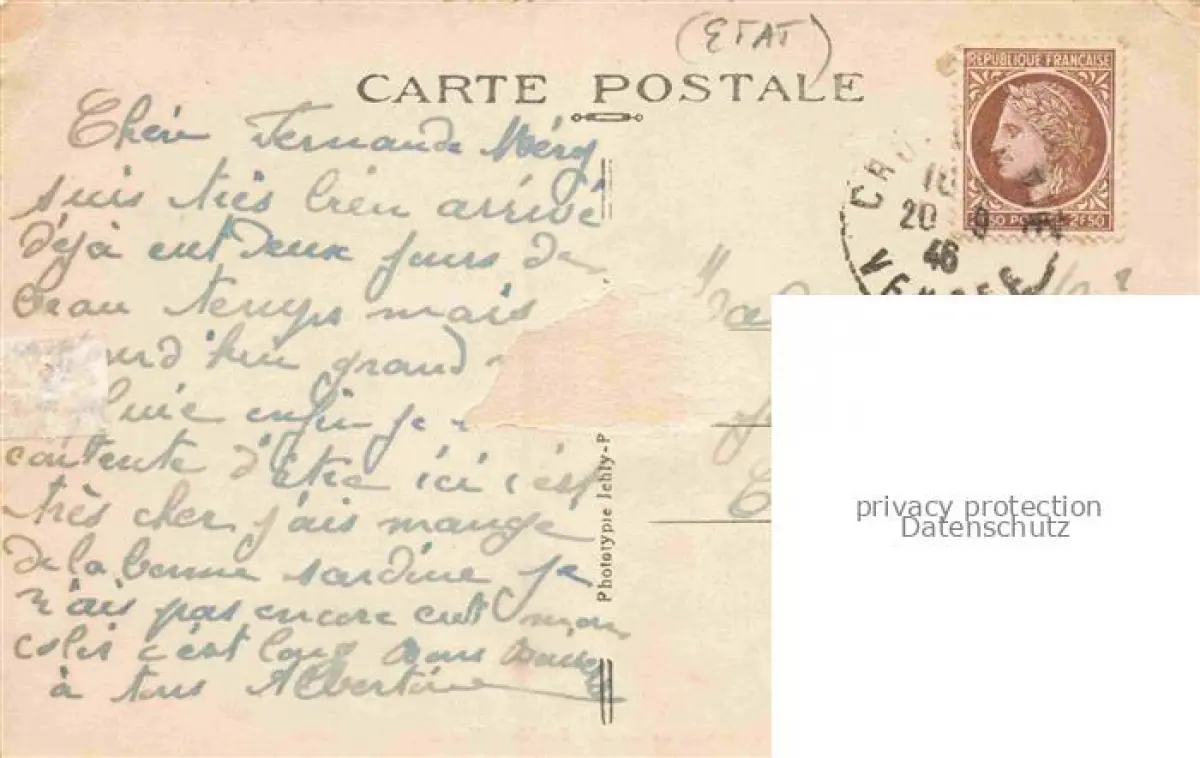 (ETAT)
CARTE POSTALE
REPUBLIQUE FRANÇAISE
2F50 POSTES 2F50
20 9
46
VENDEE
Phototypie Jehly-P
Chéri Fernande Méry
suis très bien arrivé
déjà eut deux jours de
beau temps mais
ourd'hui grand
luie enfin je
contente d'être ici c'est
très cher j'ais mangé
de la bonne sardine je
n'ais pas encore eut mon
colis c'est long Bons Baisers
à tous Albertine
privacy protection
Datenschutz